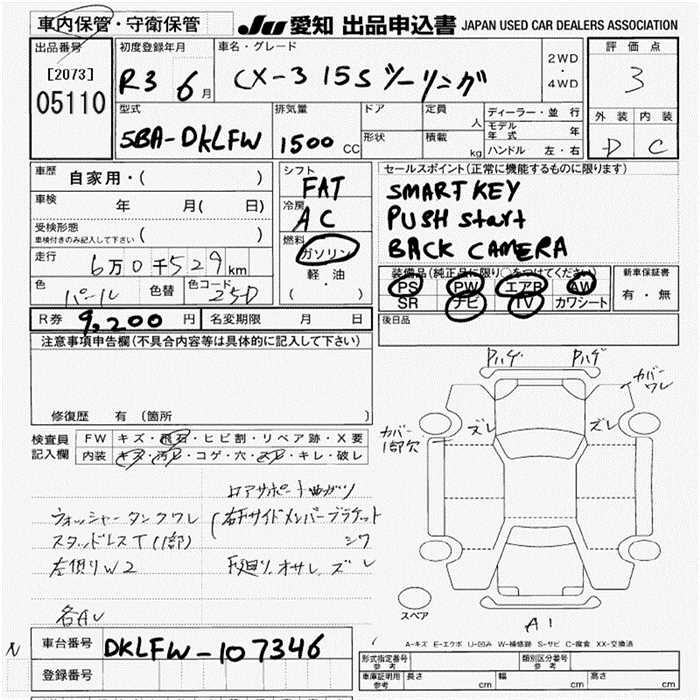 車内保管・守衛保管
JU 愛知 出品申込書 JAPAN USED CAR DEALERS ASSOCIATION
出品番号
[2073]
05110
初度登録年月
R3 6月
車名・グレード
CX-3 15S ツーリング
2WD
・
4WD
評価点
3
外装 内装
D C
型式
5BA-DKLFW
排気量
1500 CC
ドア
形状
定員 人
積載 kg
ディーラー・並行
モデル年式 年
ハンドル 左・右
車歴 自家用・( )
車検 年 月( 日)
受検形態
車検付きのみ記入して下さい ( )
走行 6万0千529km
色 パール 色替 色コード 25D
シフト
FAT
冷房
AC
燃料
ガソリン
軽油
( ・ )
セールスポイント(正常に機能するものに限ります)
SMART KEY
PUSH start
BACK CAMERA
装備品(純正品に限り○をつけてください)
PS PW エアB AW
SR ナビ TV カワシート
新車保証書
有・無
後日品
R券 9,200 円 名変期限 月 日
注意事項申告欄(不具合内容等は具体的に記入して下さい)
修復歴 有 (箇所
検査員
記入欄
FW キズ・飛石・ヒビ割・リペア跡・X要
内装 キズ・汚レ・コゲ・穴・スレ・キレ・破レ
Pハゲ Pハゲ
カバーワレ
カバー1部欠
ズレ ズレ
コアサポート曲ガリ
ウォッシャータンクワレ
右Fサイドメンバーブラケット
シワ
スタッドレスT(1部)
左側リW2
F廻リ、オサレ、ズレ
各AU
スペア
A1
A-キズ E-エクボ U-凹み W-補修跡 S-サビ C-腐食 XX-交換済
N
車台番号 DKLFW-107346
登録番号
型式指定番号
参考
類別区分番号
参考
車庫証明用
参考
長さ cm 幅 cm 高さ cm